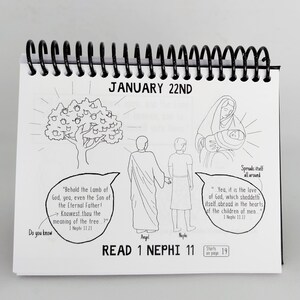 JANUARY 22ND
Spreads itself
all around
"Behold the Lamb of
God, yea, even the Son of
the Eternal Father!
Knowest thou the
meaning of the tree
1 Nephi 11:21
"Yea, it is the love
of God, which sheddeth
itself abroad in the hearts
of the children of men
1 Nephi 11:22
Do you know
Angel
Nephi
READ 1 NEPHI 11
Starts
on page
19